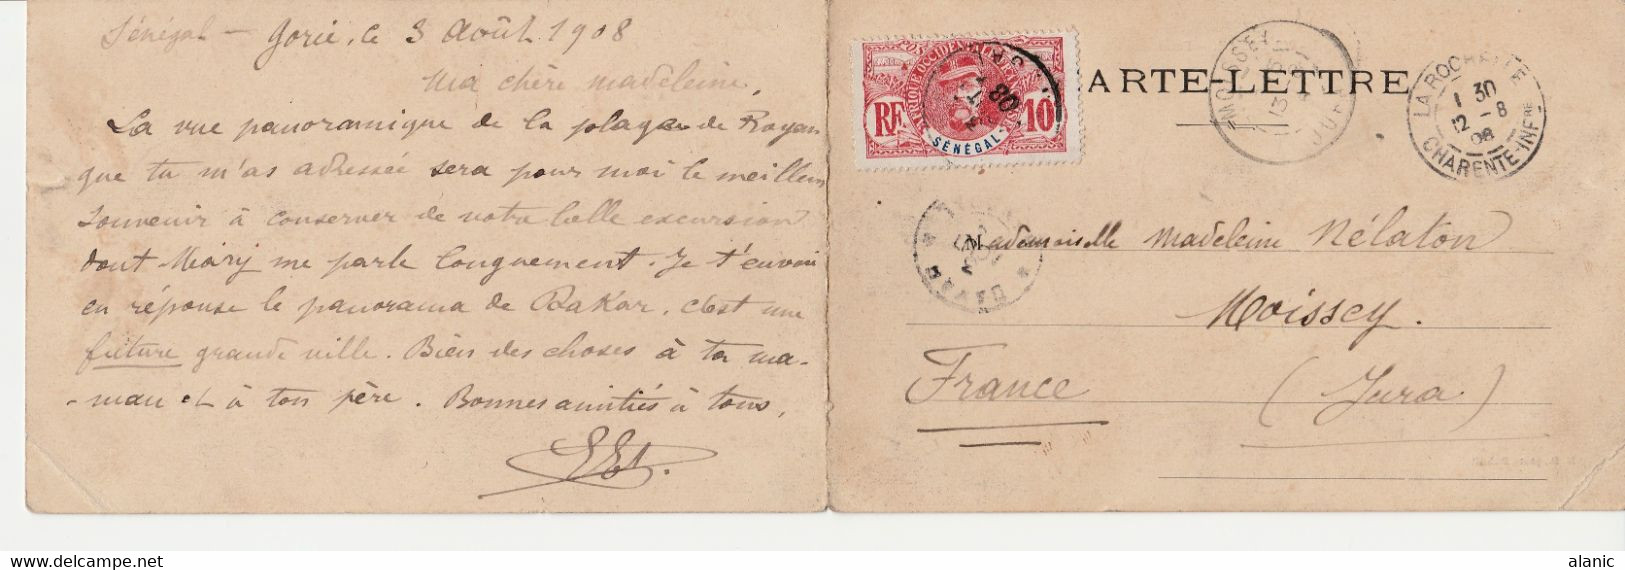 Sénégal - Gorée, le 3 Août 1908
Ma chère Madeleine,
La vue panoramique de la plage de Royan
que tu m'as adressée sera pour moi le meilleur
souvenir à conserver de notre belle excursion
dont Mary me parle longuement. Je t'envoie
en réponse le panorama de Dakar. c'est une
future grande ville. Bien des choses à ta ma-
-man et à ton père. Bonnes amitiés à tous,
CARTE-LETTRE
AFRIQUE OCCIDENTALE
RF
10
SÉNÉGAL
MOISSEY
13
JURA
LA ROCHELLE
1 30
12 -8
08
CHARENTE-INFRE
DAKAR
Mademoiselle Madeleine Nélaton
Moissey.
France
(Jura)
www.delcampe.net
alanic